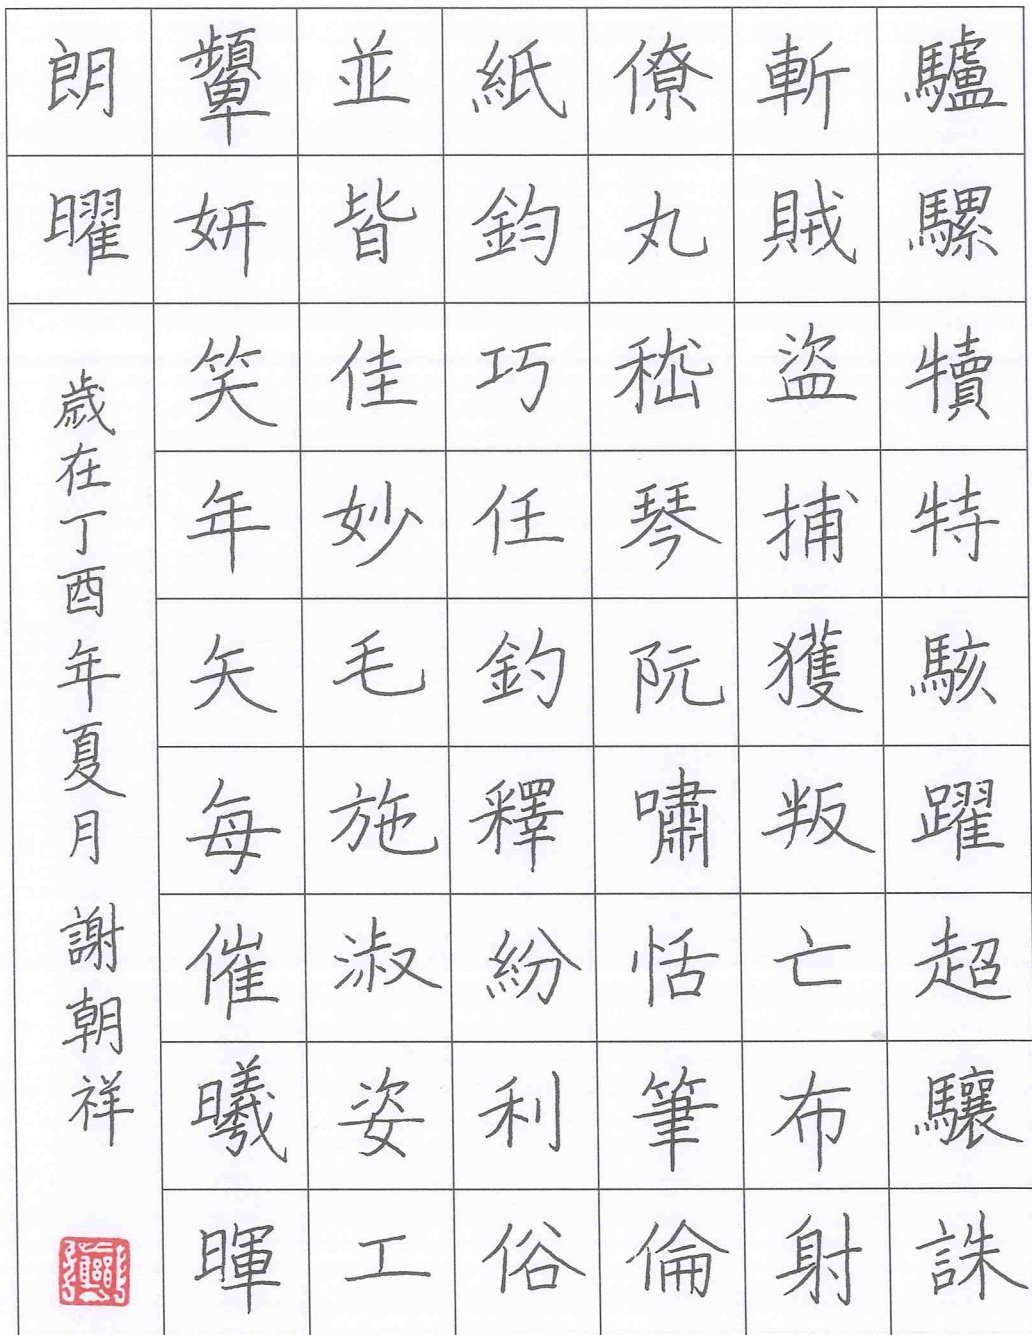 驢騾犢特駭躍超驤誅
斬賊盜捕獲叛亡布射
僚丸嵇琴阮嘯恬筆倫
紙鈞巧任釣釋紛利俗
並皆佳妙毛施淑姿工
顰妍笑年矢每催曦暉
朗曜
歲在丁酉年夏月 謝朝祥